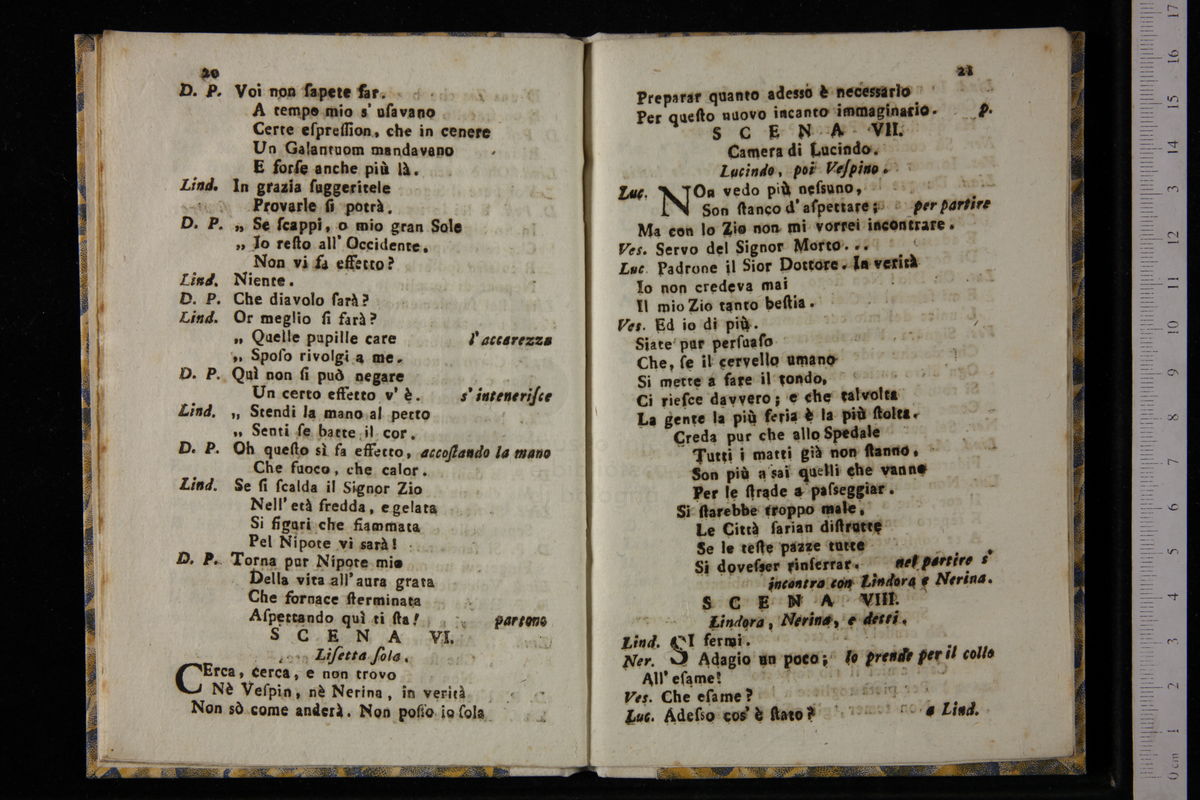 20
D. P. Voi non ſapete far.
A tempo mio s' uſavano
Certe eſpreſſion, che in cenere
Un Galantuom mandavano
E forſe anche più là.
Lind. In grazia ſuggeritele
Provarle ſi potrà.
D. P. „ Se ſcappi, o mio gran Sole
„ Io reſto all' Occidente.
Non vi fa effetto?
Lind. Niente.
D. P. Che diavolo ſarà?
Lind. Or meglio ſi farà?
„ Quelle pupille care l' accarezza
„ Spoſo rivolgi a me.
D. P. Quì non ſi può negare
Un certo effetto v' è. s' inteneriſce
Lind. „ Stendi la mano al petto
„ Senti ſe batte il cor.
D. P. Oh queſto sì fa effetto, accoſtando la mano
Che fuoco, che calor.
Lind. Se ſi ſcalda il Signor Zio
Nell' età fredda, e gelata
Si figuri che fiammata
Pel Nipote vi sarà!
D. P. Torna pur Nipote mio
Della vita all' aura grata
Che fornace ſterminata
Aſpettando quì ti ſta! partono
SCENA VI.
Liſetta ſola.
CErca, cerca, e non trovo
Nè Veſpin, nè Nerina, in verità
Non sò come anderà. Non poſſo io ſola
21
Preparar quanto adesso è necessario
Per queſto nuovo incanto immaginario. p.
SCENA VII.
Camera di Lucindo.
Lucindo, poi Veſpino.
Luc. NOn vedo più neſsuno,
Son ſtanco d' aſpettare; per partire
Ma con lo Zio non mi vorrei incontrare.
Ves. Servo del Signor Morto...
Luc. Padrone il Sior Dottore. In verità
Io non credeva mai
Il mio Zio tanto beſtia.
Ves. Ed io di più.
Siate pur perſuaſo
Che, ſe il cervello umano
Si mette a fare il tondo,
Ci rieſce davvero; e che talvolta
La gente la più ſeria è la più ſtolta.
Creda pur che allo Spedale
Tutti i matti già non ſtanno,
Son più aſsai quelli che vanno
Per le ſtrade a paſseggiar.
Si ſtarebbe troppo male,
Le Città ſarian diſtrutte
Se le teſte pazze tutte
Si doveſser rinſerrar. nel partire s'
incontra con Lindora e Nerina.
SCENA VIII.
Lindora, Nerina, e detti.
Lind. SI fermi.
Ner. Adagio un poco; lo prende per il collo
All' eſame!
Ves. Che eſame?
Luc. Adeſso cos' è ſtato? a Lind.
17
16
15
14
13
12
11
10
9
8
7
6
5
4
3
2
1
0 cm